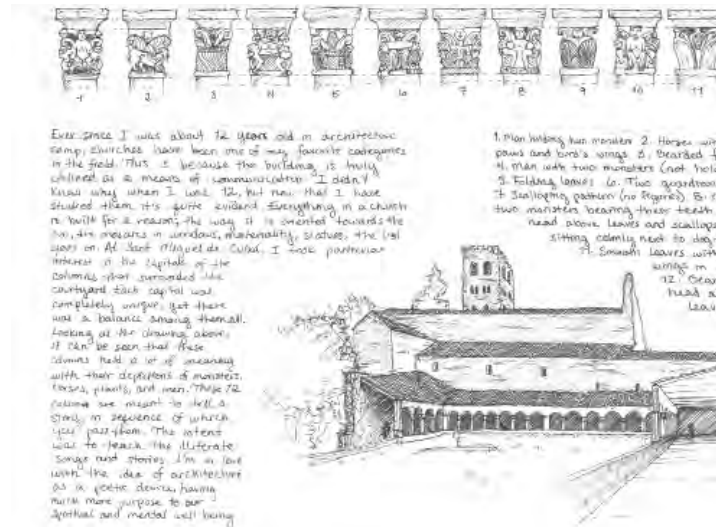 1 2 3 4 5 6 7 8 9 10 11
Ever since I was about 12 years old in architecture
camp, churches have been one of my favorite categories
in the field. This is because the building is truly
utilized as a means of communication. I didn't
know why when I was 12, but now that I have
studied them it's quite evident. Everything in a church
is built for a reason; the way it is oriented towards the
sun, the mosaics in windows, materiality, statues, the list
goes on. At Sant Miquel de Cuixà, I took particular
interest in the capitals of the
columns that surrounded the
courtyard. Each capital was
completely unique, yet there
was a balance among them all.
Looking at the drawing above,
it can be seen that these
columns held a lot of meaning
with their depictions of monsters,
horses, plants, and men. These 12
columns are meant to tell a
story in sequence of which
you pass them. The intent
was to teach the illiterate
songs and stories. I'm in love
with the idea of architecture
as a poetic device, having
much more purpose to our
spiritual and mental well being
1. Man holding two monsters 2. Horses
paws and bird's wings 3. Bearded
4. Man with two monsters (not
5. Folding leaves 6. Two
7. Scalloping pattern (no figures) 8.
two monsters bearing their teeth
head above leaves and
sitting calmly next to
11. Smooth leaves with
wings in
12.
head